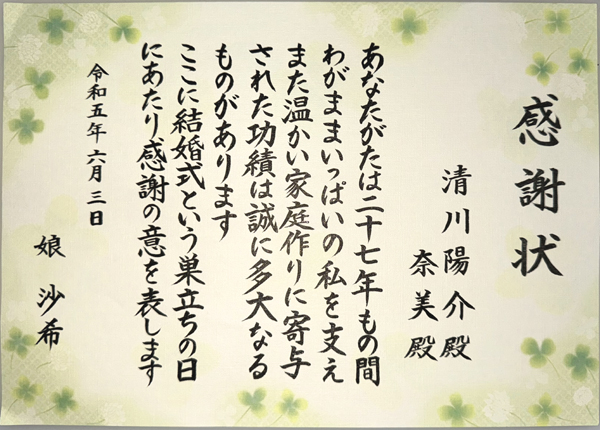 感謝状
清川陽介殿
奈美殿
あなたがたは二十七年もの間
わがままいっぱいの私を支え
また温かい家庭作りに寄与
された功績は誠に多大なる
ものがあります
ここに結婚式という巣立ちの日
にあたり感謝の意を表します
令和五年六月三日
娘 沙希